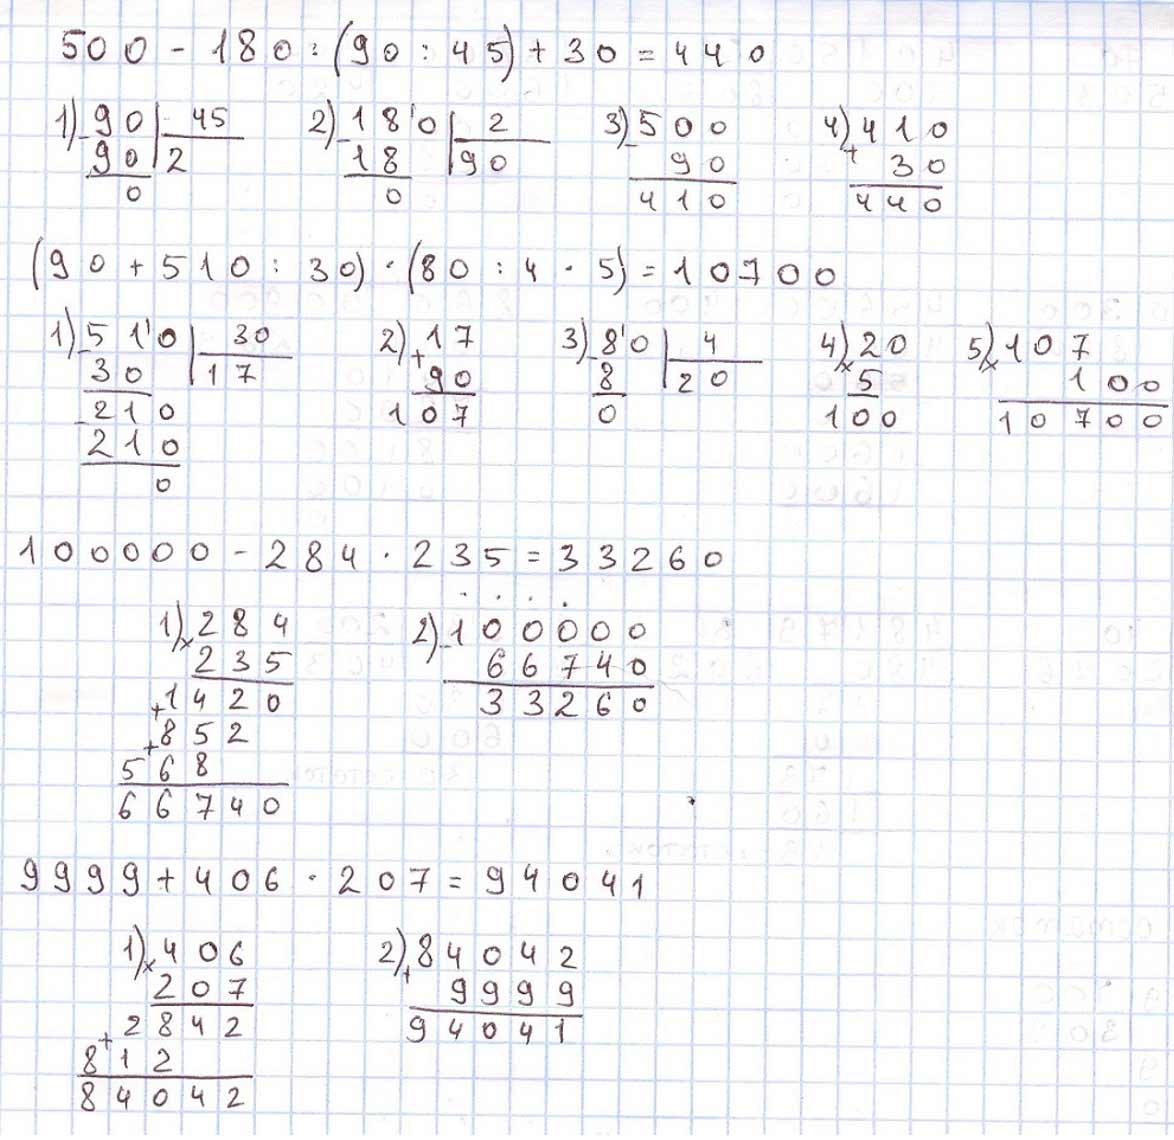 500 - 180 : (90 : 45) + 30 = 440
1) 90 45 2) 180 2 3) 500 4) 410
- 90 2 - 18 90 - 90 + 30
0 0 410 440
(90 + 510 : 30) · (80 : 4 · 5) = 10700
1) 510 30 2) 17 3) 80 4 4) 20 5) 107
- 30 17 + 90 - 8 20 × 5 × 100
- 210 107 0 100 10700
210
0
100000 - 284 · 235 = 33260
1) 284 2) 100000
× 235 - 66740
1420 33260
+ 852
+ 568
66740
9999 + 406 · 207 = 94041
1) 406 2) 84042
× 207 + 9999
2842 94041
+ 812
84042